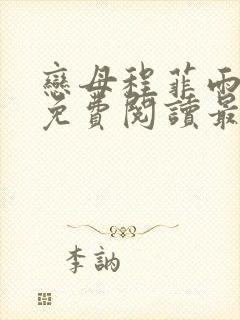 戀母程菲雨
免費閱讀最
李訥